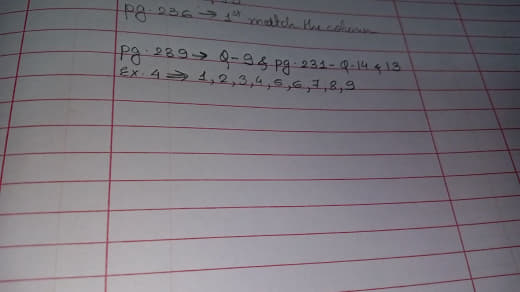 pg. 236 → 1st match the column
pg. 239 → Q-9 & pg. 231 - Q.14 & 13
Ex. 4 ⇒ 1, 2, 3, 4, 5, 6, 7, 8, 9